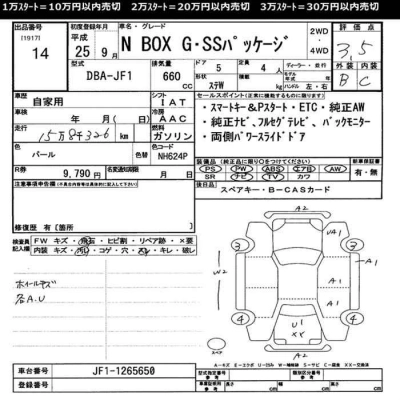 1万スタート=10万円以内売切 2万スタート=20万円以内売切 3万スタート=30万円以内売切
[1917] 初度登録年月 車名・グレード 2WD・4WD 評価点
14 平成 25年 9月 N BOX G・SSパッケージ 3,5
型式 排気量 ドア 定員 形状 モデル年式 外装 内装
DBA-JF1 660 cc 5 4 ステW ハンドル 左・右 B C
車歴 自家用 シフト IAT セールスポイント
車検 年 月 冷房 AAC ・スマートキー&Pスタート・ETC・純正AW
走行 15万8千326 km 燃料 ガソリン ・純正ナビ、フルセグテレビ、バックモニター
・両側パワースライドドア
色 パール 色コード NH624P
R券 9,790 円
装備品 PS PW ABS エアB AW 新車保証書
SR ナビ TV カワ AC 有・無
後日品 スペアキー・B-CASカード
注意事項申告欄
修復歴 有 [箇所]
検査員記入欄 FW キズ・飛石・ヒビ割・リペア跡・×要
内装 キズ・汚レ・コゲ・穴・スレ・キレ・破レ
ホイールキズ
各A.U
A2
3 UA1 3
W2 A1 A1
A1
U1 XX
3 A1 3
スペア
A2
車台番号 JF1-1265650
登録番号
型式指定番号 類別区分番号